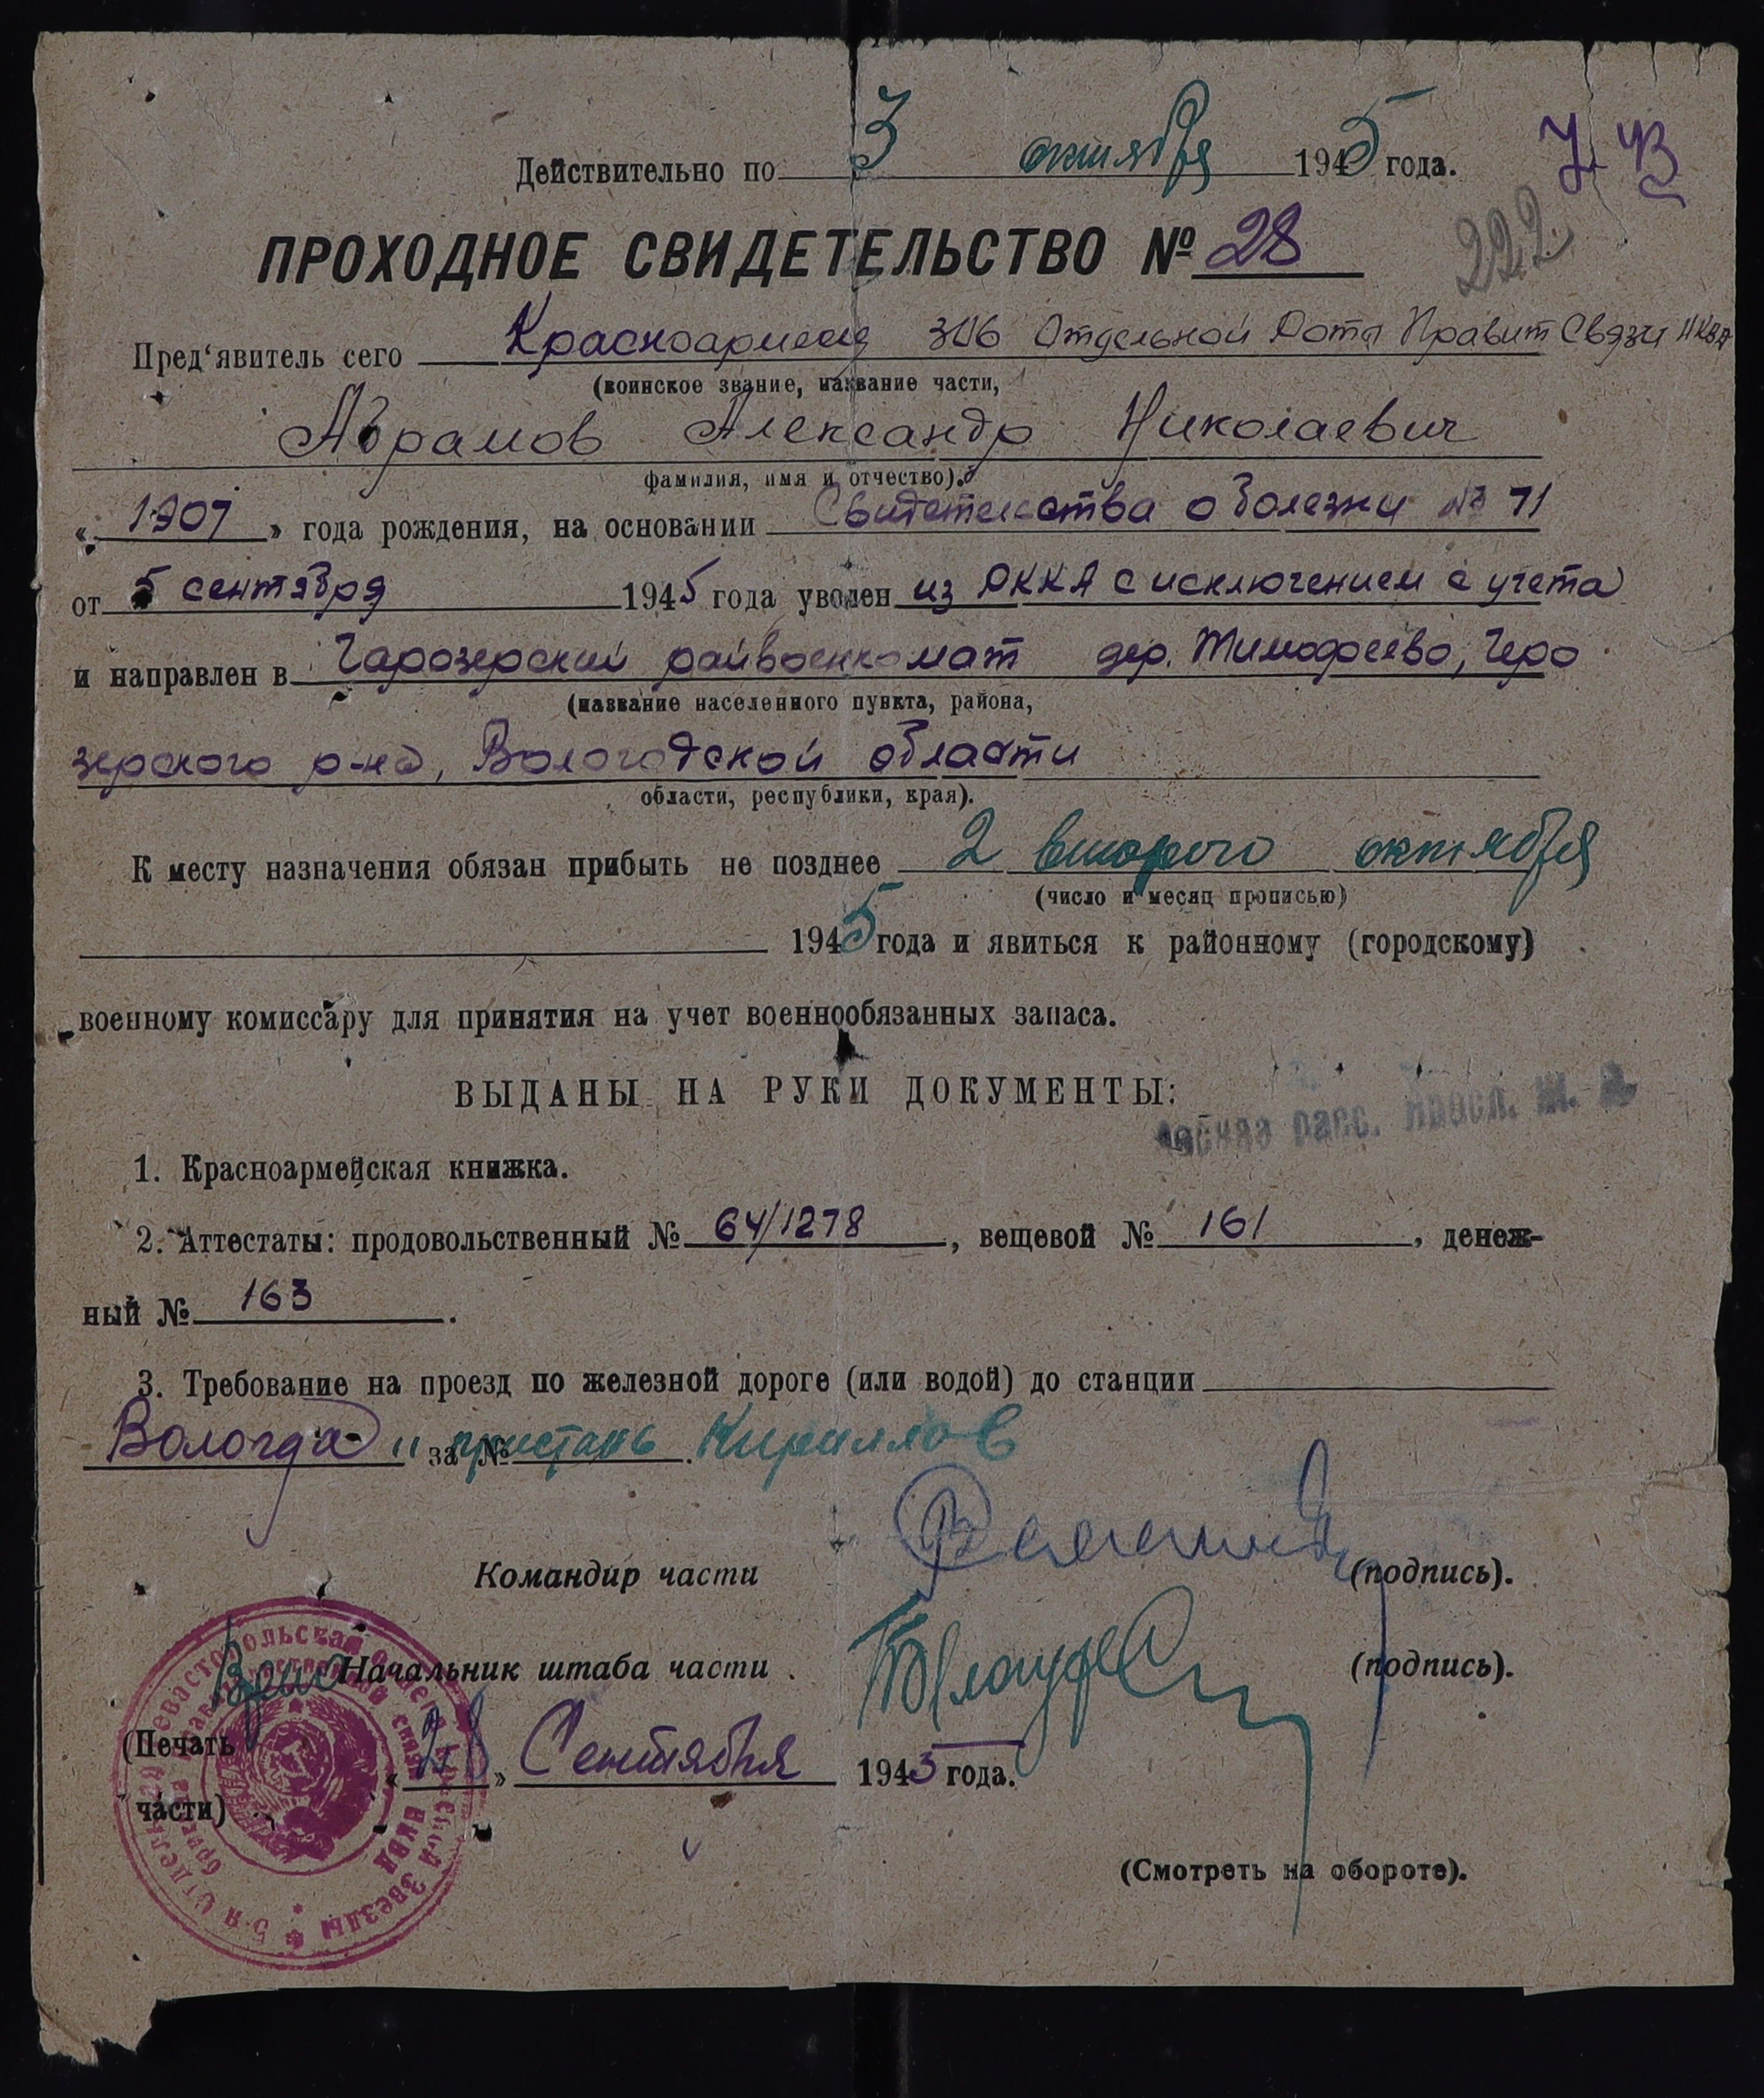 Действительно по 3 октября 1945 года.
У. УЗ
222
ПРОХОДНОЕ СВИДЕТЕЛЬСТВО № 28
Пред'явитель сего Красноармеец 306 Отдельной Роты Правит Связи НКВД
(воинское звание, название части,
Абрамов Александр Николаевич
фамилия, имя и отчество).
« 1907 » года рождения, на основании Свидетельства о болезни № 71
от 5 сентября 1945 года уволен из РККА с исключением с учета
и направлен в Чарозерский райвоенкомат дер. Тимофеево, Черо
(название населенного пункта, района,
зерского р-на, Вологодской области
области, республики, края).
К месту назначения обязан прибыть не позднее 2 второго октября
(число и месяц прописью)
1945 года и явиться к районному (городскому)
военному комиссару для принятия на учет военнообязанных запаса.
ВЫДАНЫ НА РУКИ ДОКУМЕНТЫ:
1. Красноармейская книжка.
2. Аттестаты: продовольственный № 64/1278, вещевой № 161, денеж-
ный № 163.
3. Требование на проезд по железной дороге (или водой) до станции
Вологда и пристань Кириллов за №.
Командир части (подпись).
Врио Начальник штаба части (подпись).
(Печать
части)
« 28 » Сентября 1945 года.
(Смотреть на обороте).